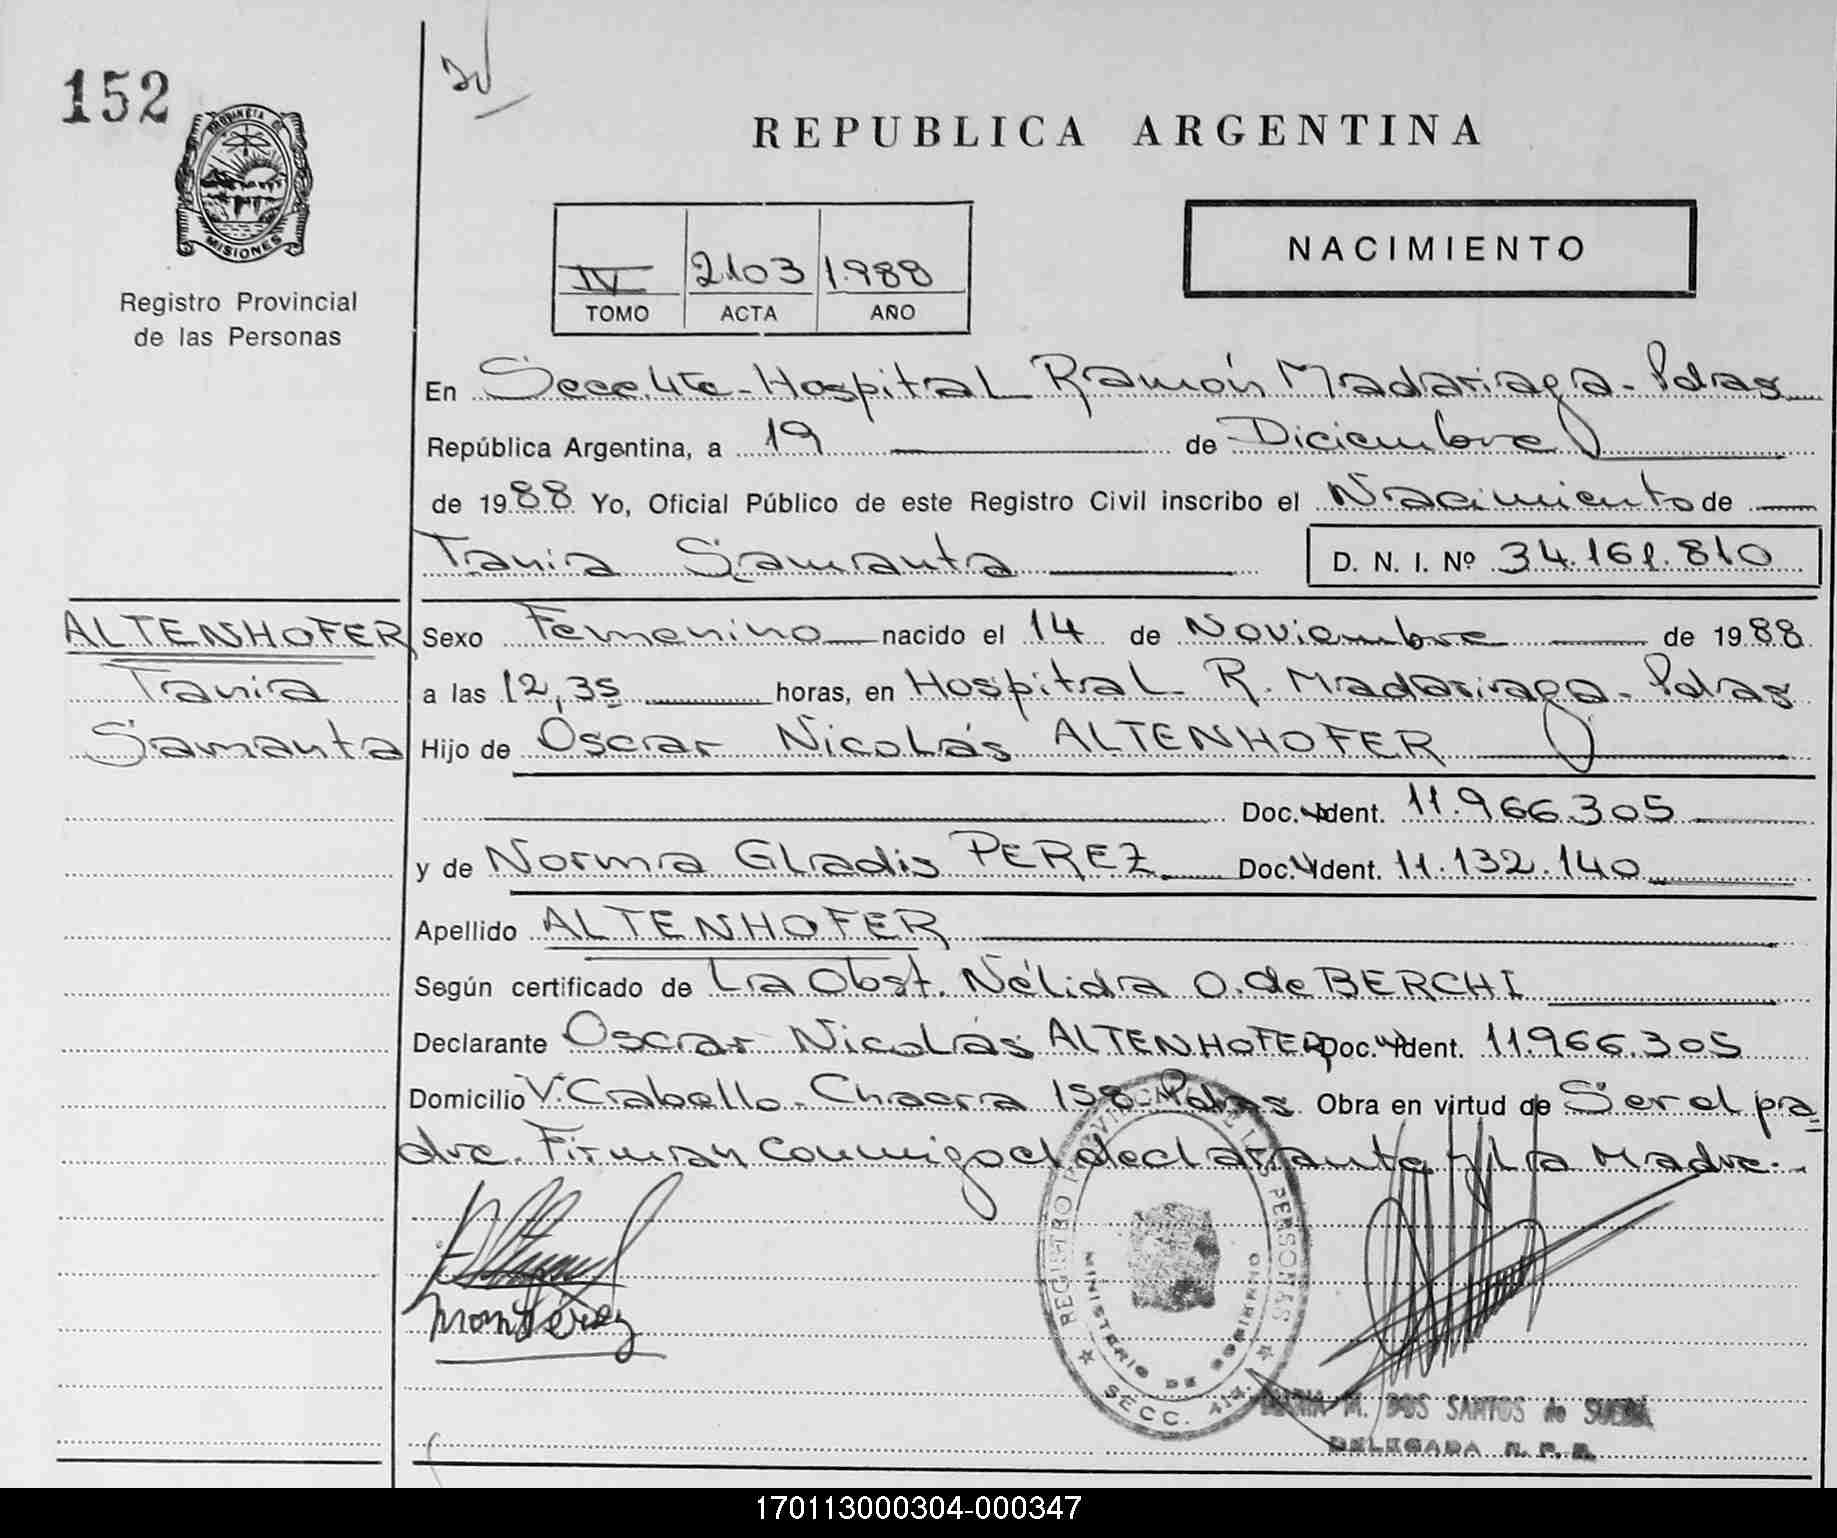 152
PROVINCIA DE
MISIONES
Registro Provincial
de las Personas
REPUBLICA ARGENTINA
IV 2103 1.988
TOMO ACTA AÑO
NACIMIENTO
En Secc. 4ta - Hospital Ramón Madariaga - Pdas
República Argentina, a 19 de Diciembre
de 1988 Yo, Oficial Público de este Registro Civil inscribo el Nacimiento de
Tania Samanta D. N. I. Nº 34.161.810
ALTENHOFER
Tania
Samanta
Sexo Femenino nacido el 14 de Noviembre de 1988
a las 12,35 horas, en Hospital R. Madariaga - Pdas
Hijo de Oscar Nicolás ALTENHOFER
Doc. Ident. 11.966.305
y de Norma Gladis PEREZ Doc. Ident. 11.132.140
Apellido ALTENHOFER
Según certificado de La Obst. Nélida O. de BERCHI
Declarante Oscar Nicolás ALTENHOFER Doc. Ident. 11.966.305
Domicilio V. Cabello - Chacra 158 Pdas Obra en virtud de Ser el pa=
dre. Firman conmigo el declarante y la Madre.-
REGISTRO PROVINCIAL DE LAS PERSONAS
MINISTERIO DE GOBIERNO
SECC. 4ta.
MARIA M. DOS SANTOS de
DELEGADA R. P. P.
170113000304-000347